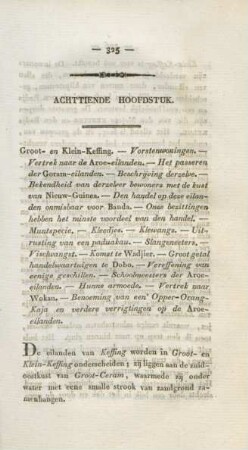 — 325 —
ACHTTIENDE HOOFDSTUK.
Groot- en Klein-Keffing. — Vorstenwoningen. —
Vertrek naar de Aroe-eilanden. — Het passeren
der Goram-eilanden. — Beschrijving derzelve. —
Bekendheid van derzelver bewoners met de kust
van Nieuw-Guinea. — Den handel op deze eilan-
den onmisbaar voor Banda. — Onze bezittingen
hebben het minste voordeel van den handel. —
Muntspecie. — Kleedjes. — Klewangs. — Uit-
rusting van een paduakan. — Slangeneters.
Vischvangst. — Komst te Wadjier. — Groot getal
handelsvaartuigen te Dobo. — Vereffening van
eenige geschillen. — Schoolmeesters der Aroe-
eilanden. — Hunne armoede. — Vertrek naar
Wokan. — Benoeming van een' Opper-Orang-
Kaja en verdere verrigtingen op de Aroe-
eilanden.
De eilanden van Keffing worden in Groot- en
Klein-Keffing onderscheiden; zij liggen aan de zuid-
oostkust van Groot-Ceram, waarmede zij onder
water met eene smalle strook van zandgrond za-
menhangen.